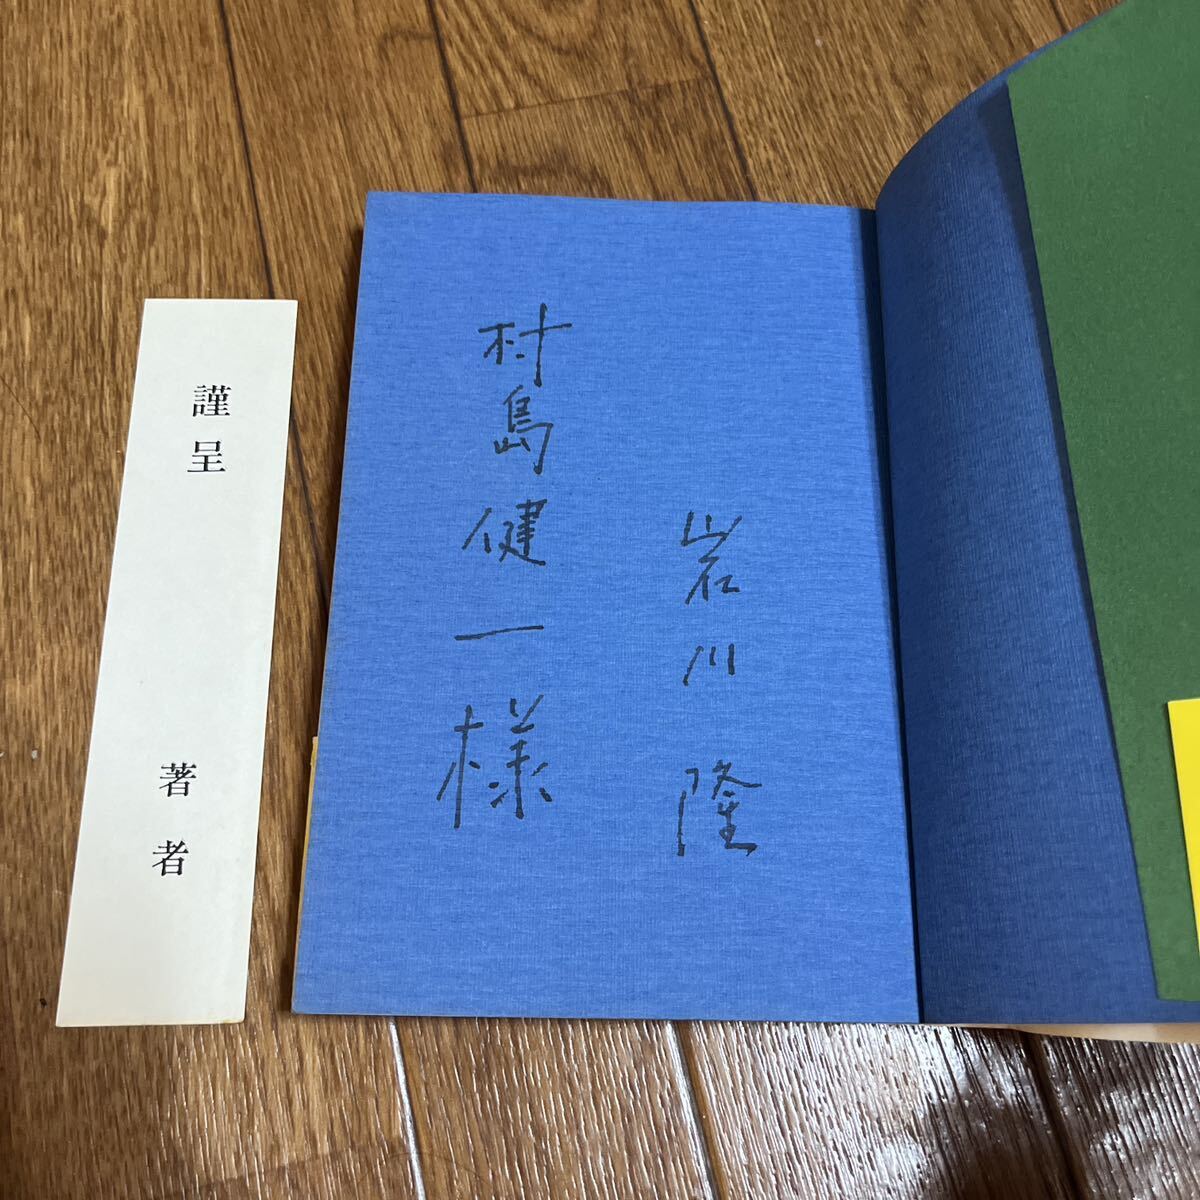 岩川隆
村島健一様
謹呈
著者